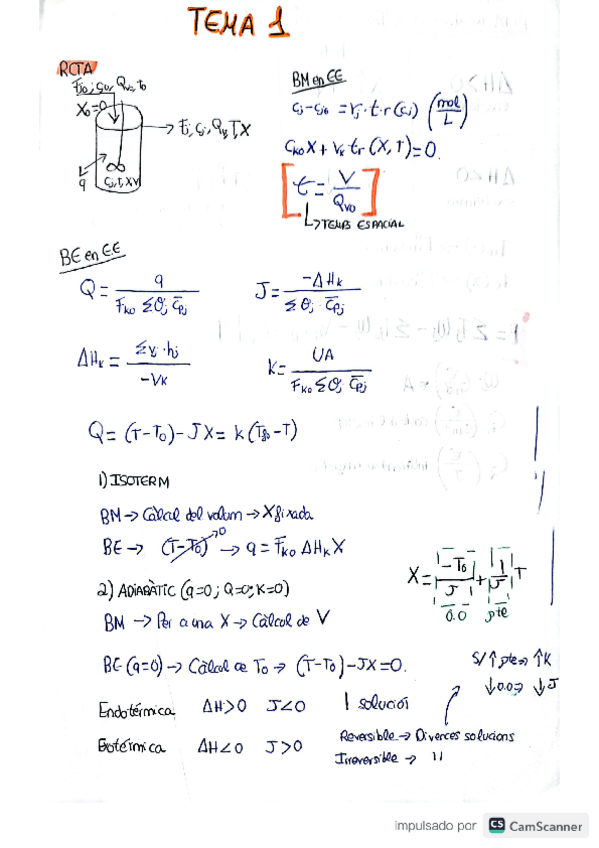 TEMA 1
RCTA
Fjo, cjo, Qvo, to
X₀=0
Fj, cj, Qv, T, X
q
cj, t, X, V
BM en EE
cj-cjo = rj · tr(cj) (mol/L)
Cko X + Vk tr (X, T) = 0.
t = V/Qvo
↳ TEMPS ESPACIAL
BE en EE
Q = q / (Fko Σθj C̄pj)
J = -ΔHk / (Σθj · C̄pj)
ΔHk = Σγj · hj / -Vk
K = UA / (Fko Σθj C̄pj)
Q = (T-To) - JX = K (Tfo-T)
1) ISOTERM
BM → Càlcul del volum → X fixada
BE → (T-To)→0 → q = Fko ΔHk X
2) ADIABÀTIC (q=0; Q=0; K=0)
BM → Per a una X → Càlcul de V
X = -To/J + 1/J T
0.0 pte
BE (q=0) → Càlcul de To → (T-To) - JX = 0.
S/ ↑pte → ↑K
↓0.0 → ↓J
Endotérmica ΔH>0 J<0 1 solució
Exotérmica ΔH<0 J>0
Reversible → Diverces solucions
Irreversible → 11
impulsado por CS CamScanner